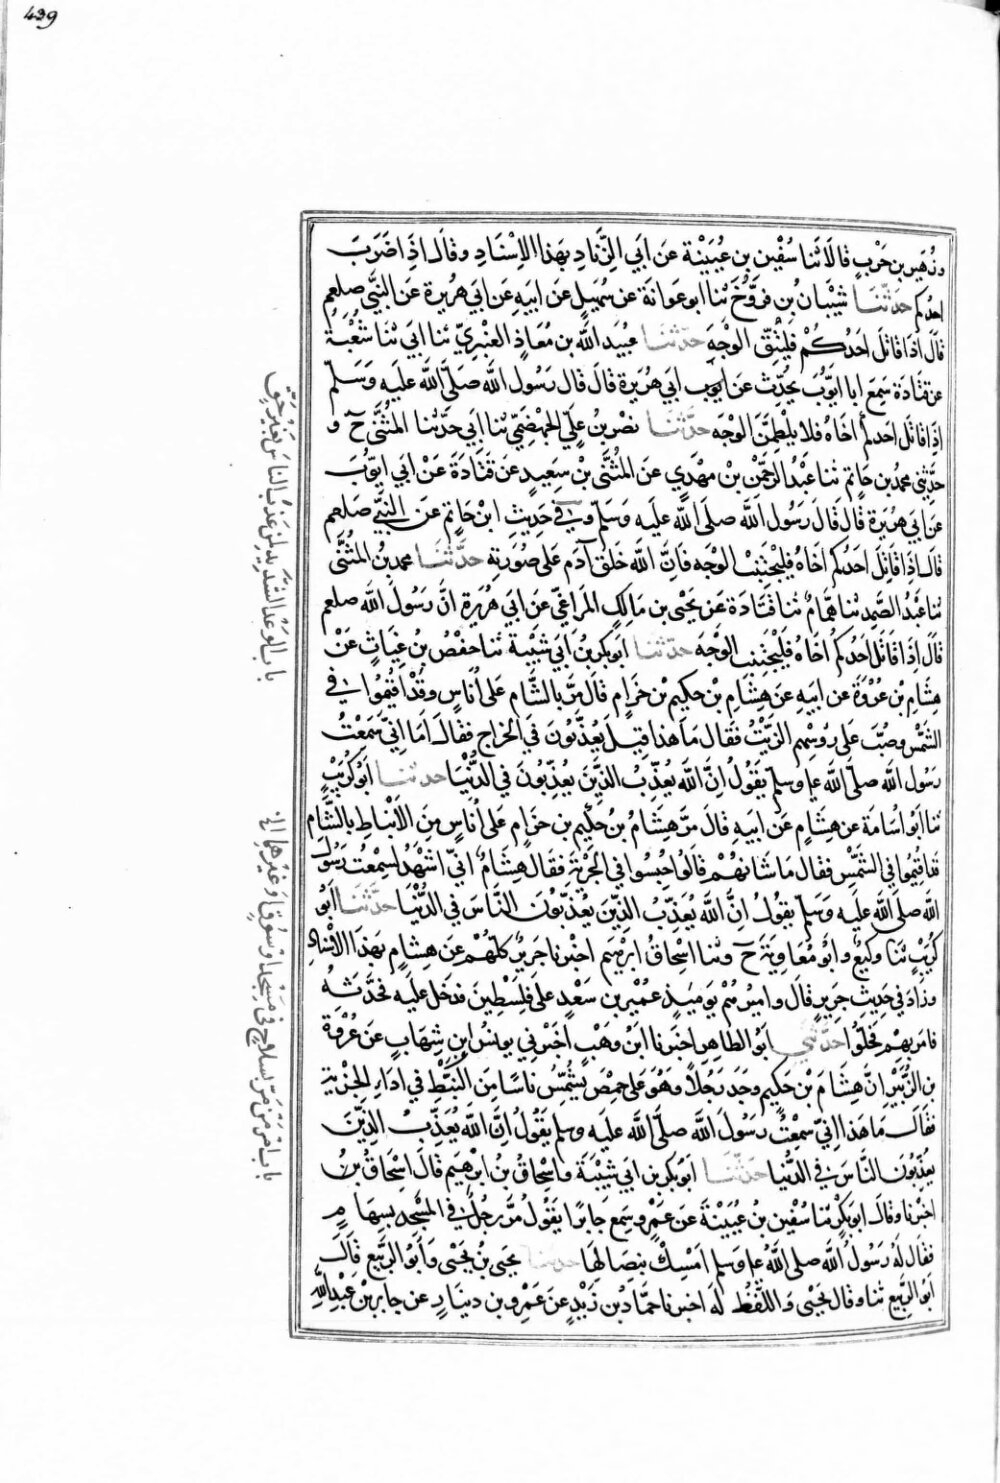 439
وزُهَيربن حَرْبٍ قَالَا ثَنَا سُفْين بن عُيَيْنة عَن ابَي الزِّنَادِ بهَذا الاِسْنَادِ وقالَ اذَا ضَرَبَ
احدُكم حَدَّثَنَا شَيْبَانُ بن فَرُّوخَ ثنا ابوعَوانَة عن سُهَيلٍ عَن ابيهِ عَن ابي هريرة عَن النبّي صلعم
قَالَ اذَا قَاتَل احَدكُمْ فَليَتّقِ الوَجْهَ حَدّثنَا عُبيد الله بن مُعَاذٍ العَنْبريّ ثنا ابي ثنا شُعْبة
عن قتادَة سَمِعَ ابا ايُّوبَ يُحدِّث عَن ابي هرَيرة قَالَ قال رَسُول الله صَلّى الله عَليه وَسَلّم
اِذَا قاتَل احَدكُم اخَاهُ فلا يلْطِمَنَّ الوجْه حَدَّثنَا نصْر بن علي الجَهضَمِيّ ثنا ابي حَدّثنا المُثَنَّى حَ و
حَدَّثني محمد بن حَاتِم ثنا عَبْدُ الرّحمٰن بْن مهْدِي عَن المُثَنَّى بْن سَعِيدٍ عَن قَتَادَة عَنْ ابَي ايّوبَ
عَن ابي هُريرَة قَالَ قَالَ رَسُول الله صَلَّى اللهُ عَليه وَسَلّم وَفي حَدِيثِ ابْن حَاتِم عَن النَّبّي صَلعم
قَالَ اِذَا قَاتَلَ احَدُكم اخَاهُ فَليَجْتَنِبْ الوَجه فَانّ اللهَ خَلَقَ آدَمَ عَلى صُورَتِهِ حَدَّثنَا محمد بن المُثَنَّى
ثنا عَبْدُ الصَّمد ثنا هَمَّامٌ ثنا قتَادَة عَن يَحْيَى بن مَالِكٍ المَراغيّ عَن ابَي هُرَيرة انَّ رَسُول الله صلعم
قَالَ اذَا قَاتَل احَدُكُم اخَاهُ فَلْيَجْتَنِبِ الوَجْهَ حَدّثنَا ابَوبَكر بن ابَي شَيْبَة ثنا حفْصُ بن غِيَاثٍ عَنْ
هِشام بن عُرْوَة عَن ابيهِ عَن هِشَام بن حكِيم بن حَزام قَال مَرّ بالشَّام عَلى اُناسٍ وقَدْ اُقيمُوا في
الشَّمْسِ وصُبّ عَلى رؤسِهم الزّيْتُ فَقَال مَا هذا قيل يُعَذَّبُونَ في الخراج فقَالَ امَا اِنّي سَمِعْتُ
رَسُول الله صلّى الله عليه وسلم يَقُولُ اِنَّ الله يُعذِّب الذّين يُعذِّبُونَ في الدُّنْيَا حدثنَا ابُو كُرَيْبٍ
ثنا ابو اُسَامَة عن هِشامٍ عَن ابيهِ قَالَ مَرّ هِشَامُ بُن حكيم بن حزام عَلى اُناسٍ مِن الأنْبَاطِ بالشَّام
قَد اقيمُوا في الشَّمْسِ فقَال مَا شَانهُمْ قَالُوا حُبِسُوا في الجزية فقَال هِشَامٌ اِنّي اشْهَدُ لسَمِعْتُ رَسُول
الله صلَّى الله عَليه وَسَلّم يقُولُ انَّ الله يُعَذِّبُ الذين يُعَذِّبُونَ النَّاسَ في الدُّنْيَا حَدَّثَنَا ابُو
كُرَيْبٍ ثنا وَكيعٌ وابُو مُعَاويَة حَ وثنا اسْحَاقُ ابرهيم اخبرنا جَرِيرٌ كلّهُمْ عَن هِشامٍ بَهَذا الاسْنَادِ
وزَادَ في حَدِيثِ جرِيرٍ قَال وامِيرُهُمْ يَومَيذٍ عُميْر بن سَعْدٍ عَلى فلِسْطينَ فدَخَل عليه فحَدَّثهُ
فامَر بهِمْ فخُلّوا حَدّثني ابُو الطاهِر اخبرنا ابْن وَهْبٍ اخبَرْني يونسُ ابن شِهابٍ عَن عُرْوَة
بن الزُّبَيْر اِنَّ هِشامَ بن حكيم وجَدَ رَجُلاً وَهُوَ عَلى حِمْصَ يُشمِّسُ نَاسًا مِنَ النَّبطِ في ادَاءِ الجِزْية
فقَالَ مَا هَذا اِنيّ سمِعْتُ رَسُولَ الله صلَّى الله عَليه وسلم يَقُولُ انَّ الله يُعَذِّبُ الذينَ
يُعذِّبُونَ النَّاسَ في الدُّنيَا حَدَّثَنَا ابوبكر بن ابي شيْبَة واسْحاقُ بن ابرهيَم قَالَ اسْحَاق بُن
اخبرنا وقَالَ ابوبَكرٍ ثنا سُفْين بن عُيَيْنَة عَن عَمْرٍو سَمِع جَابرًا يَقُولُ مَرّ رجُلٌ في المسْجد بسِهَامٍ
فقَال لَهُ رَسُولُ الله صلى اللهُ عليه وسلم امْسِكْ بنِصَالهَا حدثنا يحيَى بن يَحْيى وَابُو الرّبيع قَالَ
ابُو الرّبيع ثنا وقال يحْيَى وَاللّفظُ لَهُ اخبرنا حمَّاد بن زَيْدٍ عَن عَمْرو بن دينَارٍ عَن جابر بن عَبْد اللهِ
باب الوَعيد الشَّدِيد لمن عَذّبَ الناسَ بَغير حَقّ
بابُ امْر مَن مَرّ بسلاح في مَسْجد اوْ سُوقٍ او غيْرهما